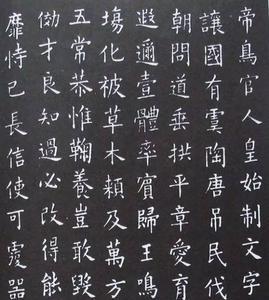 帝鳥官人皇始制文字
讓國有虞陶唐吊民伐
朝問道垂拱平章愛育
遐邇壹體率賓歸王鳴
塲化被草木賴及萬方
五常恭惟鞠養豈敢毀
効才良知過必改得能
靡恃己長信使可覆器